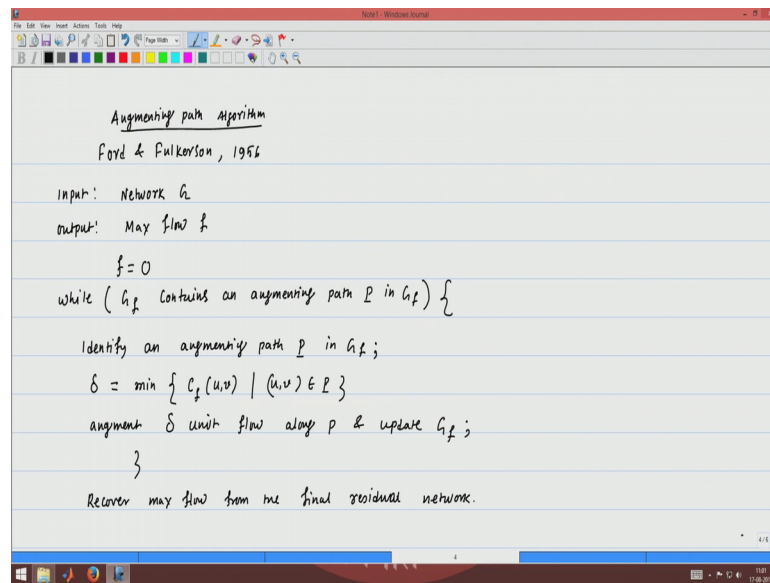 Note1 - Windows Journal
File Edit View Insert Actions Tools Help
Page Width
B I
Augmenting path Algorithm
Ford & Fulkerson, 1956
Input: Network G
output: Max flow f
f = 0
while ( G_f contains an augmenting path P in G_f ) {
Identify an augmentig path P in G_f ;
δ = min { C_f (u,v) | (u,v) ∈ P }
augment δ unit flow along P & update G_f ;
}
Recover max flow from the final residual network.
4/6
4
11:01